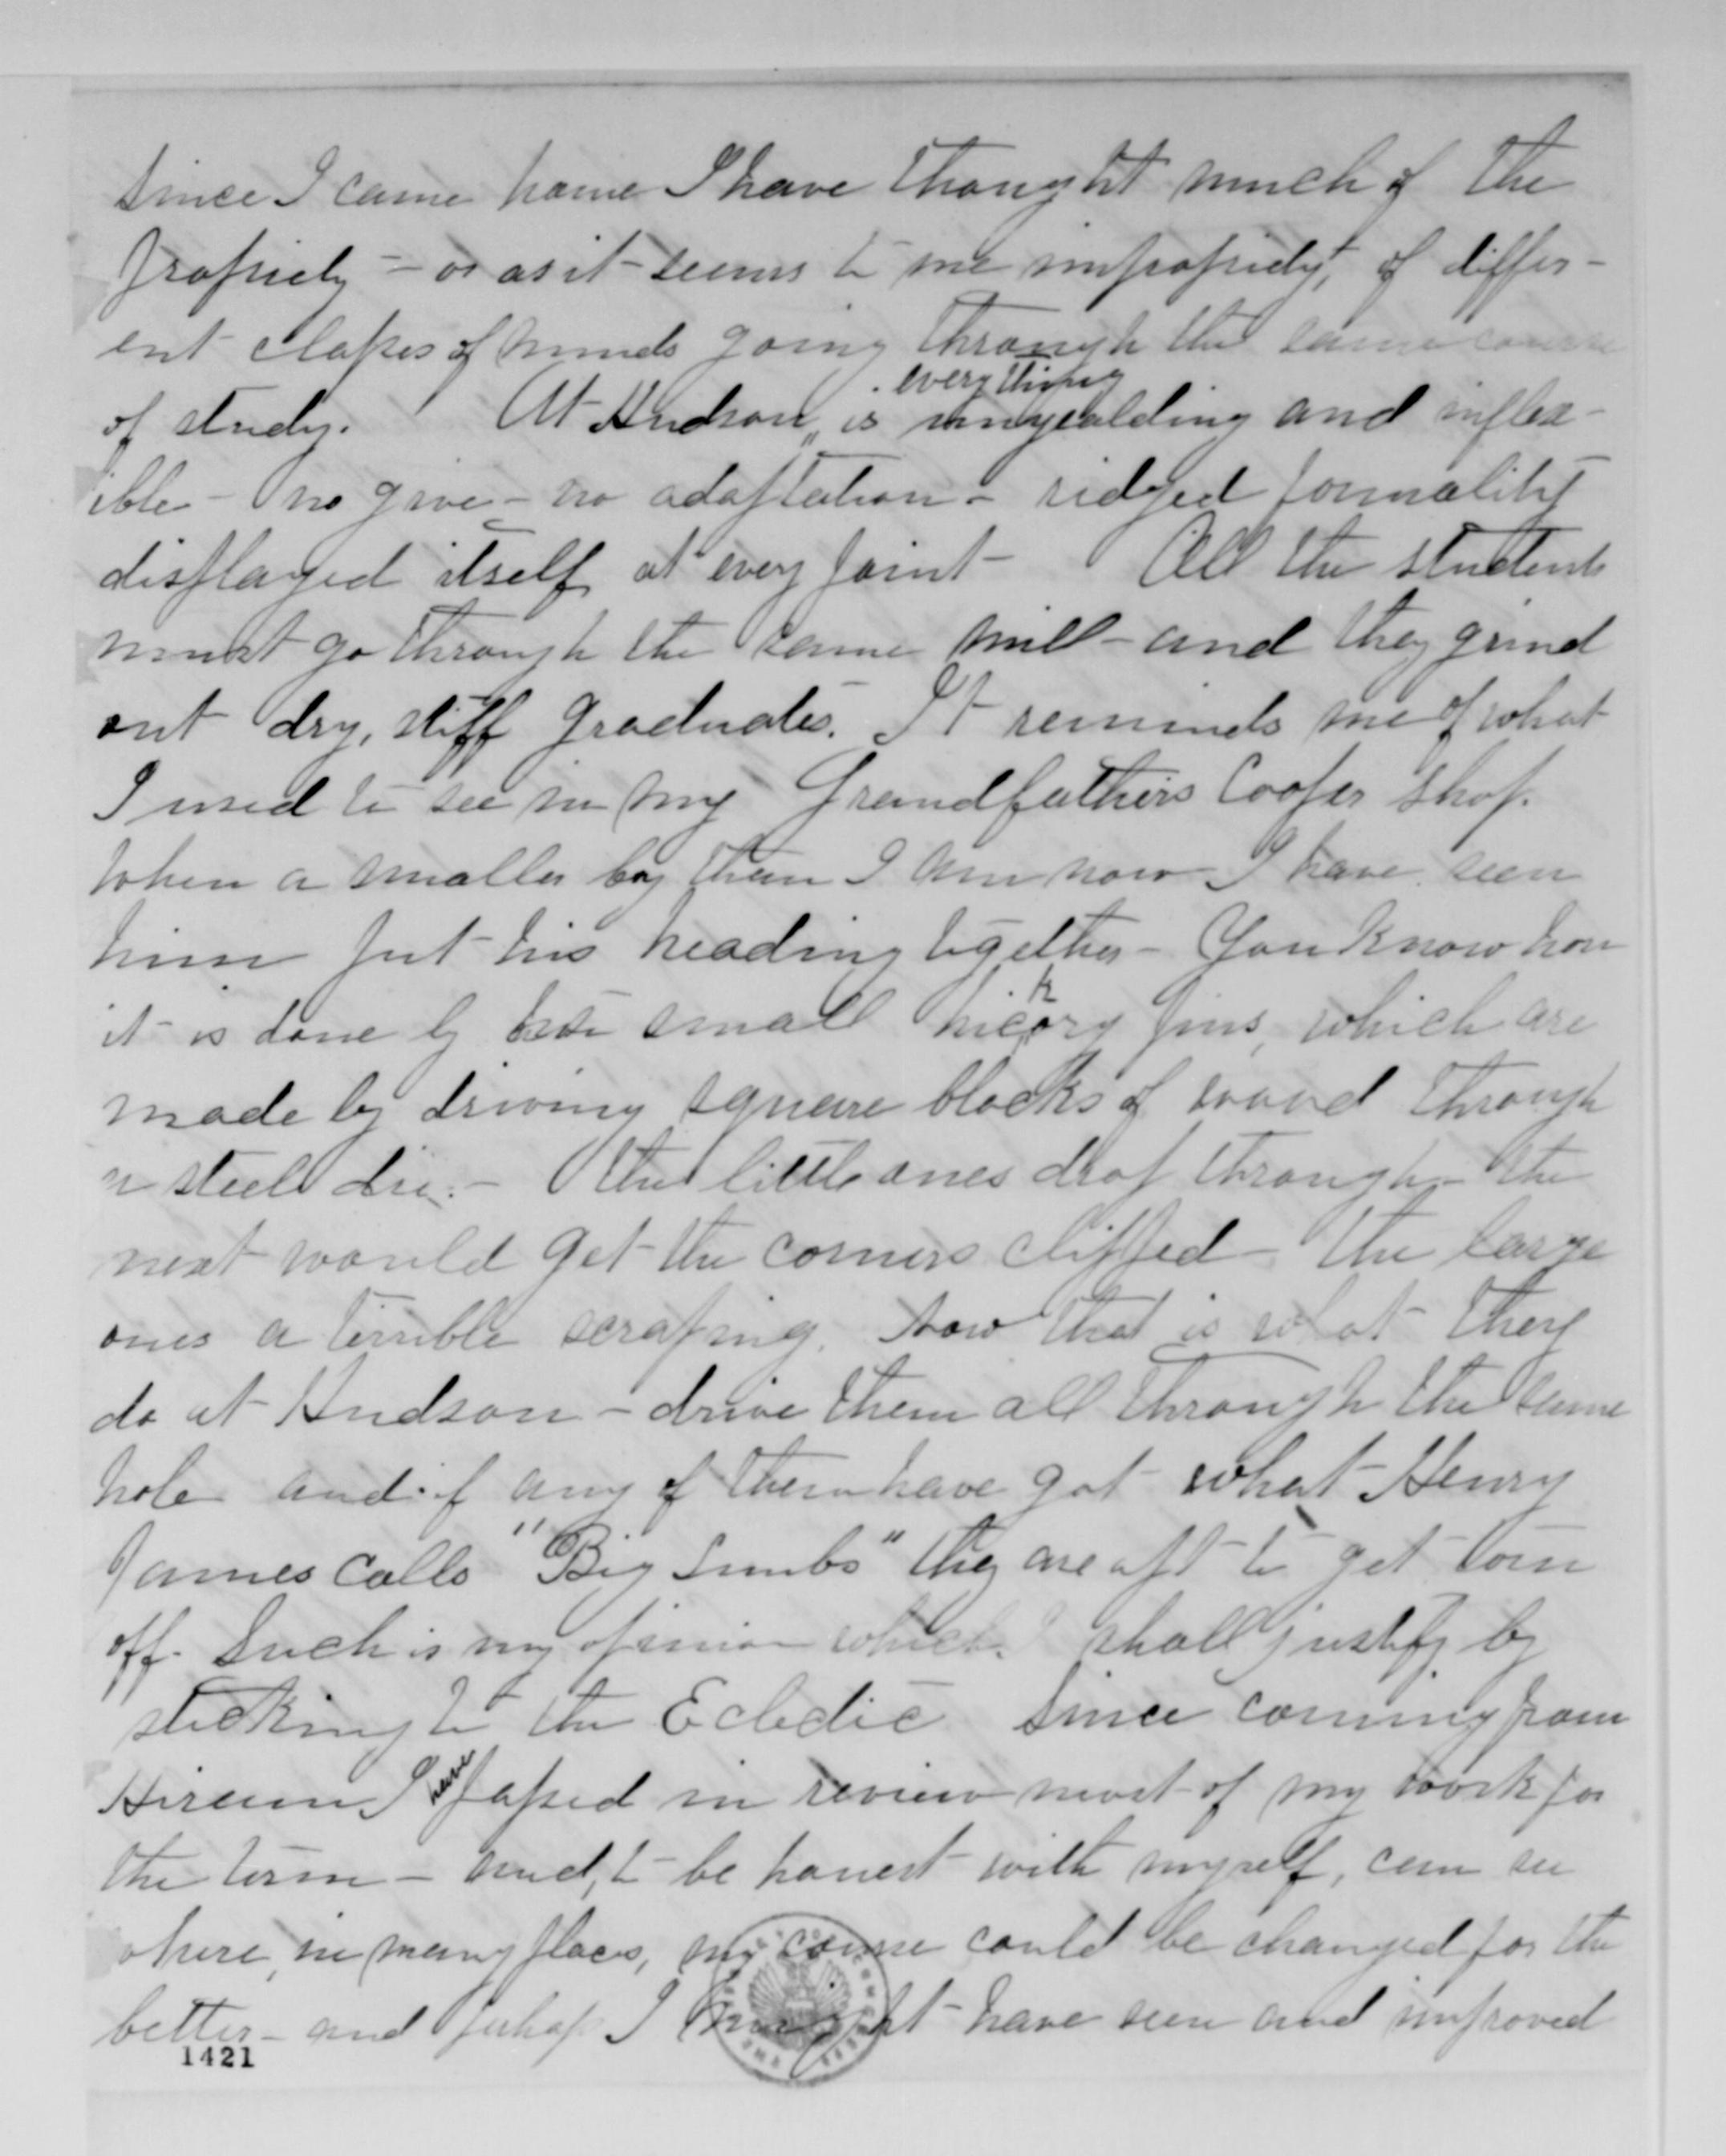 Since I came home I have thought much of the
propriety - or as it seems to me impropriety, of differ-
ent classes of minds going through the same course
of study. At Hudson everything is unyealding and inflex-
ible - no give - no adaptation - ridged formality
displayed itself at every point - All the students
must go through the same mill - and they grind
out dry, stiff graduates. It reminds me of what
I used to see in my Grandfathers Cooper shop.
When a smaller boy than I am now I have seen
him put his heading together - You know how
it is done by small hickory pins, which are
made by driving square blocks of wood through
a steel die. - The little ones drop through - the
next would get the corners clipped - the large
ones a terrible scraping. Now that is what they
do at Hudson - drive them all through the same
hole and if any of them have got what Henry
James calls "Big Lumbs" they are apt to get torn
off. Such is my opinion which I shall justify by
sticking to the Eclectic Since coming from
Hiram I have passed in review most of my work for
the term - and, to be honest with myself, can see
where, in many places, my course could be changed for the
better - and perhaps I might have seen and improved
1421